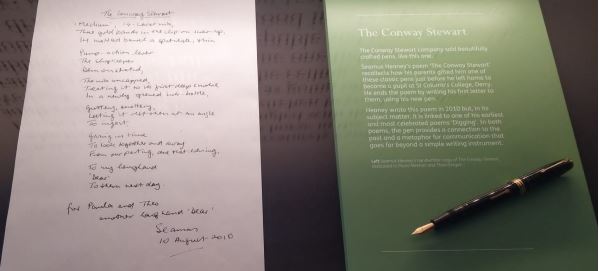 The Conway Stewart
'Medium', 14-carat nib,
Three gold bands in the clip-on screw-top,
In the mottled barrel a spatulate, thin
Pump-action lever
The shopkeeper
Demonstrated,
The nib uncapped,
Treating it to its first deep snorkel
In a newly opened ink-bottle,
Guttery, snottery,
Letting it rest then at an angle
To ingest,
Giving us time
To look together and away
From our parting, due that evening,
To my longhand
'Dear'
To them, next day.
for Paula and Theo
another longhand 'Dear'
Seamus
10 August 2010
The Conway Stewart
The Conway Stewart company sold beautifully
crafted pens, like this one.
Seamus Heaney's poem 'The Conway Stewart'
recollects how his parents gifted him one of
these classic pens just before he left home to
become a pupil at St Columb's College, Derry.
He ends the poem by writing his first letter to
them, using his new pen.
Heaney wrote this poem in 2010 but, in its
subject matter, it is linked to one of his earliest
and most celebrated poems 'Digging'. In both
poems, the pen provides a connection to the
past and a metaphor for communication that
goes far beyond a simple writing instrument.
Left Seamus Heaney's handwritten copy of 'The Conway Stewart',
dedicated to Paula Meehan and Theo Dorgan.